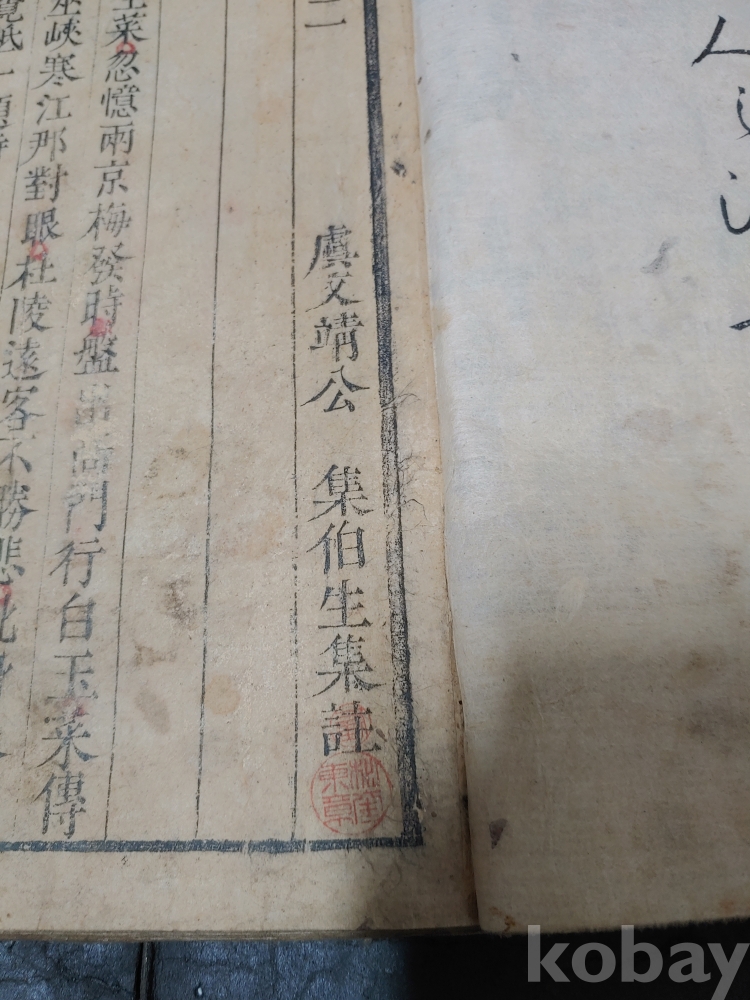 人
二 虞文靖公 集伯生集註
菜忽憶兩京梅發時盤出高門行白玉菜傳
巫峽寒江那對眼杜陵遠客不勝悲此身
覓紙一題
kobay